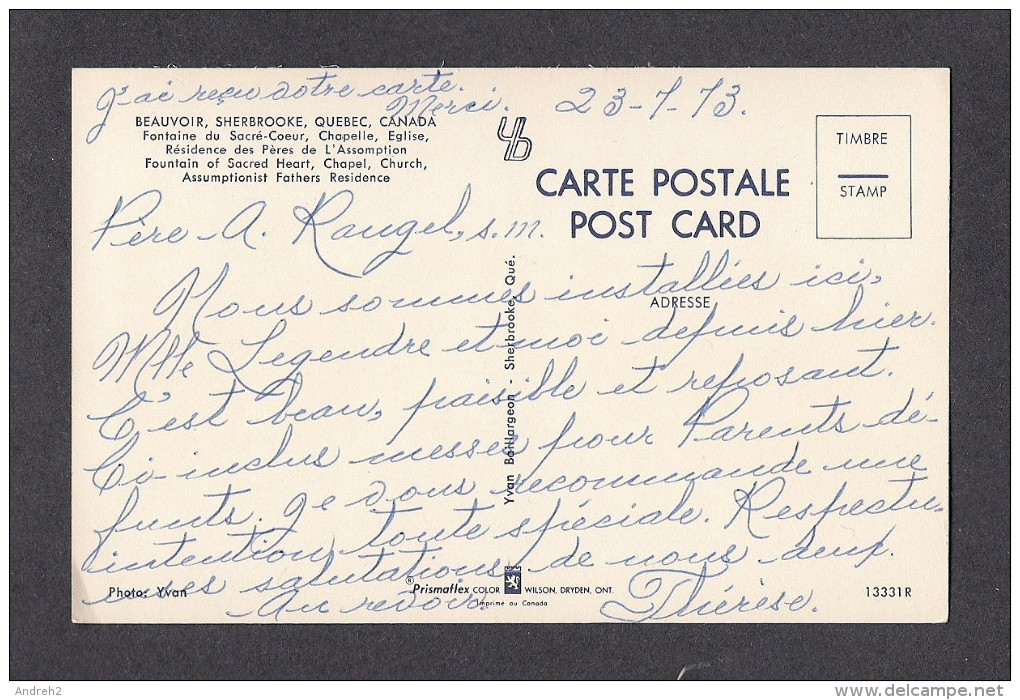 J'ai reçu votre carte.
Merci. 23-7-73.
BEAUVOIR, SHERBROOKE, QUEBEC, CANADA
Fontaine du Sacré-Coeur, Chapelle, Eglise,
Résidence des Pères de L'Assomption
Fountain of Sacred Heart, Chapel, Church,
Assumptionist Fathers Residence
YB
CARTE POSTALE
POST CARD
TIMBRE
STAMP
ADRESSE
Père A. Rangel, s.m.
Nous sommes installées ici,
Mlle Legendre et moi depuis hier.
C'est beau, paisible et reposant.
Ci-inclus messes pour Parents dé-
funts. Je vous recommande une
intention toute spéciale. Respectu-
euses salutations de nous deux.
Au revoir. Thérèse.
Yvan Baillargeon - Sherbrooke, Qué.
Photo: Yvan
®Prismaflex COLOR WILSON, DRYDEN, ONT.
Imprimé au Canada
13331R
Andreh2
www.delcampe.net